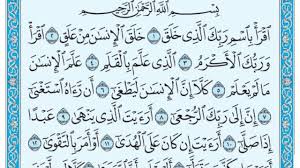 بِسْمِ اللَّهِ الرَّحْمَٰنِ الرَّحِيمِ
اقْرَأْ بِاسْمِ رَبِّكَ الَّذِي خَلَقَ ١ خَلَقَ الْإِنسَانَ مِنْ عَلَقٍ ٢ اقْرَأْ
وَرَبُّكَ الْأَكْرَمُ ٣ الَّذِي عَلَّمَ بِالْقَلَمِ ٤ عَلَّمَ الْإِنسَانَ
مَا لَمْ يَعْلَمْ ٥ كَلَّا إِنَّ الْإِنسَانَ لَيَطْغَىٰ ٦ أَن رَّآهُ اسْتَغْنَىٰ
٧ إِنَّ إِلَىٰ رَبِّكَ الرُّجْعَىٰ ٨ أَرَأَيْتَ الَّذِي يَنْهَىٰ ٩ عَبْدًا
إِذَا صَلَّىٰ ١٠ أَرَأَيْتَ إِن كَانَ عَلَى الْهُدَىٰ ١١ أَوْ أَمَرَ بِالتَّقْوَىٰ ١٢